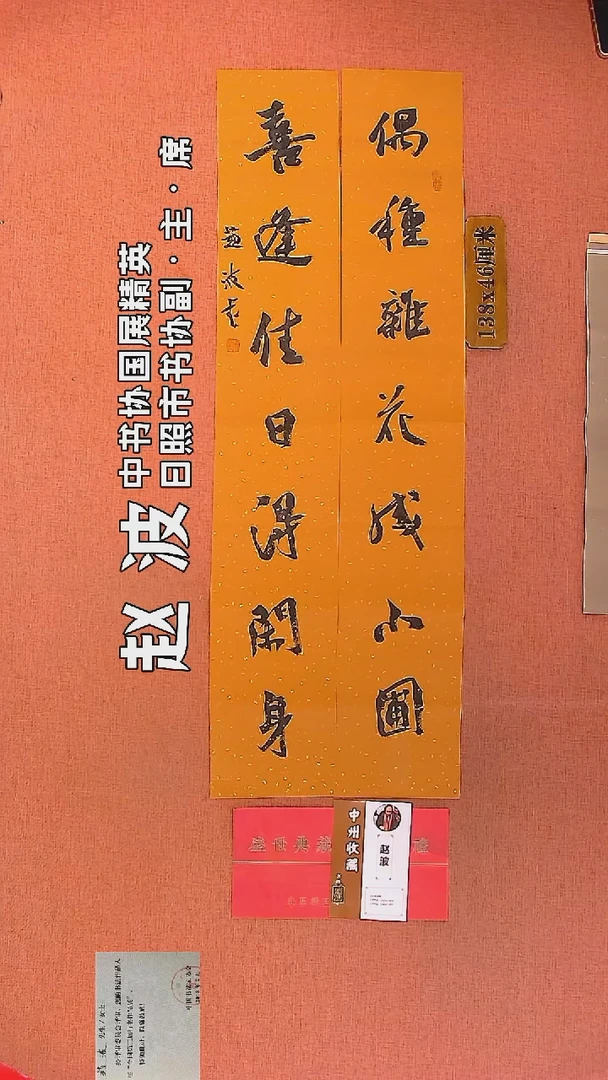 偶種雜花成小圃
喜逢佳日得閑身
趙波書
138x46厘米
赵波
中书协国展精英
日照市书协副·主·席
盛世典藏
中州收藏
赵波
先生/女士